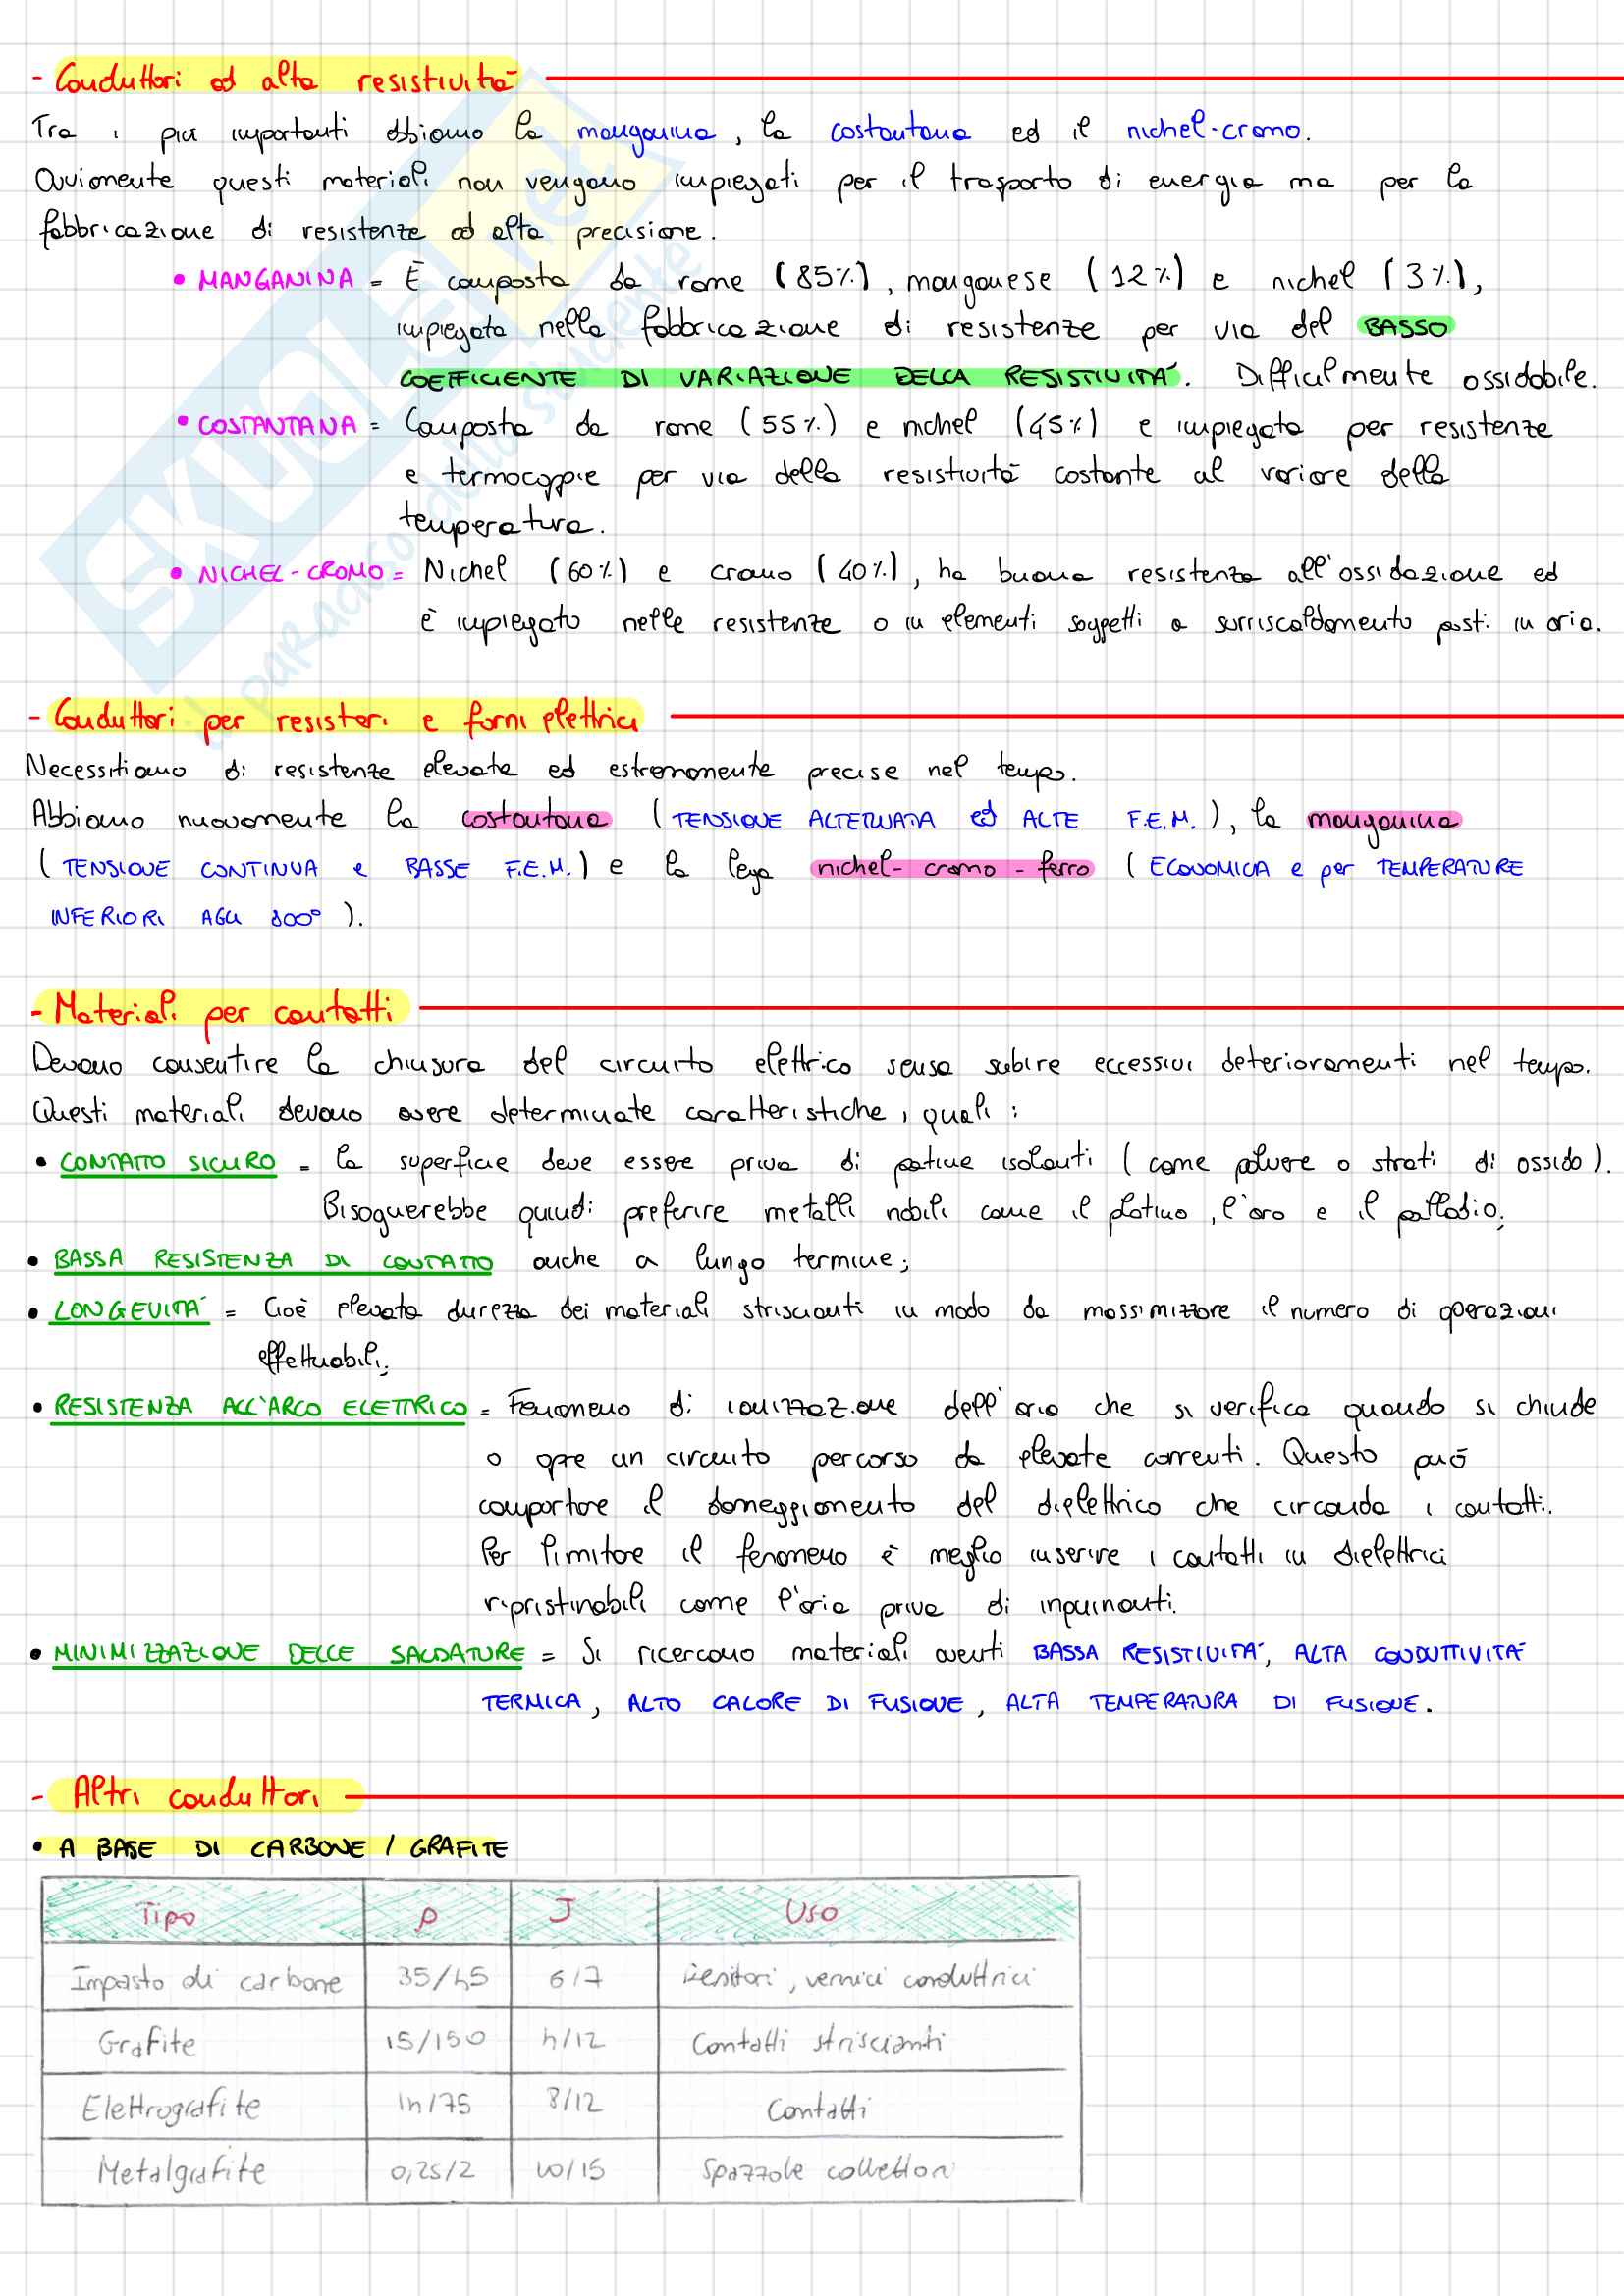 - Conduttori ad alta resistività
Tra i più importanti abbiamo la manganina, la costantana ed il nichel-cromo.
Ovviamente questi materiali non vengono impiegati per il trasporto di energia ma per la
fabbricazione di resistenze ad alta precisione.
• MANGANINA = È composta da rame (85%), manganese (12%) e nichel (3%),
impiegata nella fabbricazione di resistenze per via del BASSO
COEFFICIENTE DI VARIAZIONE DELLA RESISTIVITÀ. Difficilmente ossidabile.
• COSTANTANA = Composta da rame (55%) e nichel (45%) e impiegata per resistenze
e termocoppie per via della resistività costante al variare della
temperatura.
• NICHEL-CROMO = Nichel (60%) e cromo (40%), ha buona resistenza all'ossidazione ed
è impiegato nelle resistenze o in elementi soggetti a surriscaldamento posti in aria.
- Conduttori per resistori e forni elettrici
Necessitiamo di resistenze elevate ed estremamente precise nel tempo.
Abbiamo nuovamente la costantana (TENSIONE ALTERNATA ed ALTE F.E.M.), la manganina
(TENSIONE CONTINUA e BASSE F.E.M.) e la lega nichel-cromo-ferro (ECONOMICA e per TEMPERATURE
INFERIORI AGLI 800°).
- Materiali per contatti
Devono consentire la chiusura del circuito elettrico senza subire eccessivi deterioramenti nel tempo.
Questi materiali devono avere determinate caratteristiche, quali:
• CONTATTO SICURO = la superficie deve essere priva di patine isolanti (come polvere o strati di ossido).
Bisognerebbe quindi preferire metalli nobili come il platino, l'oro e il palladio;
• BASSA RESISTENZA DI CONTATTO anche a lungo termine;
• LONGEVITÀ = Cioè elevata durezza dei materiali striscianti in modo da massimizzare il numero di operazioni
effettuabili;
• RESISTENZA ALL'ARCO ELETTRICO = Fenomeno di ionizzazione dell'aria che si verifica quando si chiude
o apre un circuito percorso da elevate correnti. Questo può
comportare il danneggiamento del dielettrico che circonda i contatti.
Per limitare il fenomeno è meglio inserire i contatti in dielettrici
ripristinabili come l'aria priva di inquinanti.
• MINIMIZZAZIONE DELLE SALDATURE = Si ricercano materiali aventi BASSA RESISTIVITÀ, ALTA CONDUTTIVITÀ
TERMICA, ALTO CALORE DI FUSIONE, ALTA TEMPERATURA DI FUSIONE.
- Altri conduttori
• A BASE DI CARBONE / GRAFITE
Tipo ρ J Uso
Impasto di carbone 35/45 6/7 Resistori, vernici conduttrici
Grafite 15/150 4/12 Contatti striscianti
Elettrografite 14/75 8/12 Contatti
Metalgrafite 0,25/2 10/15 Spazzole collettori
SKUOLA.net
il paradiso dello studente